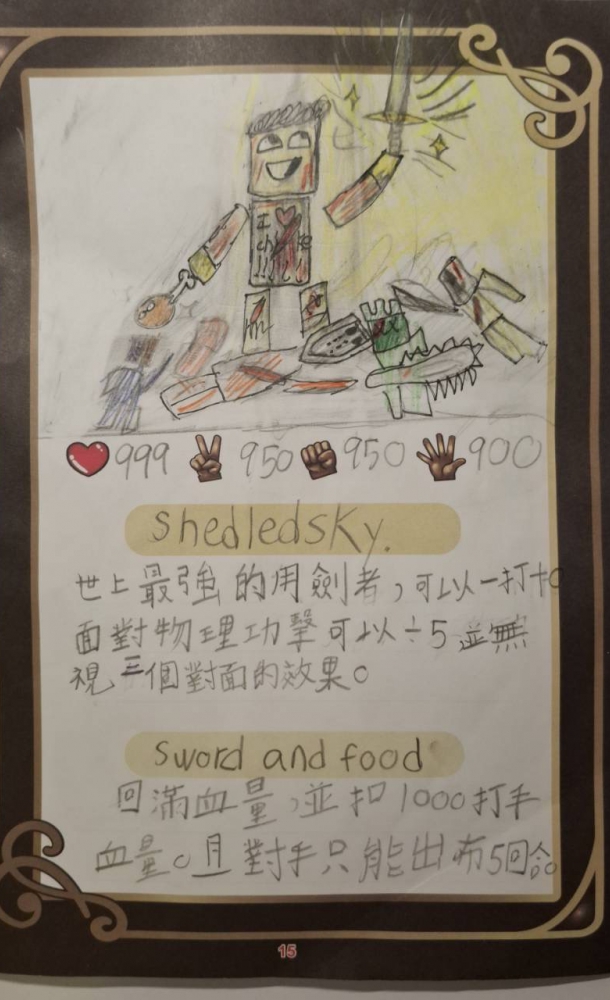 999 950 950 900
shedledsky.
世上最強的用劍者,可以一打十。
面對物理功擊可以÷5並無
視三個對面的效果。
sword and food
回滿血量,並扣1000打手
血量。且對手只能出布5回合
15